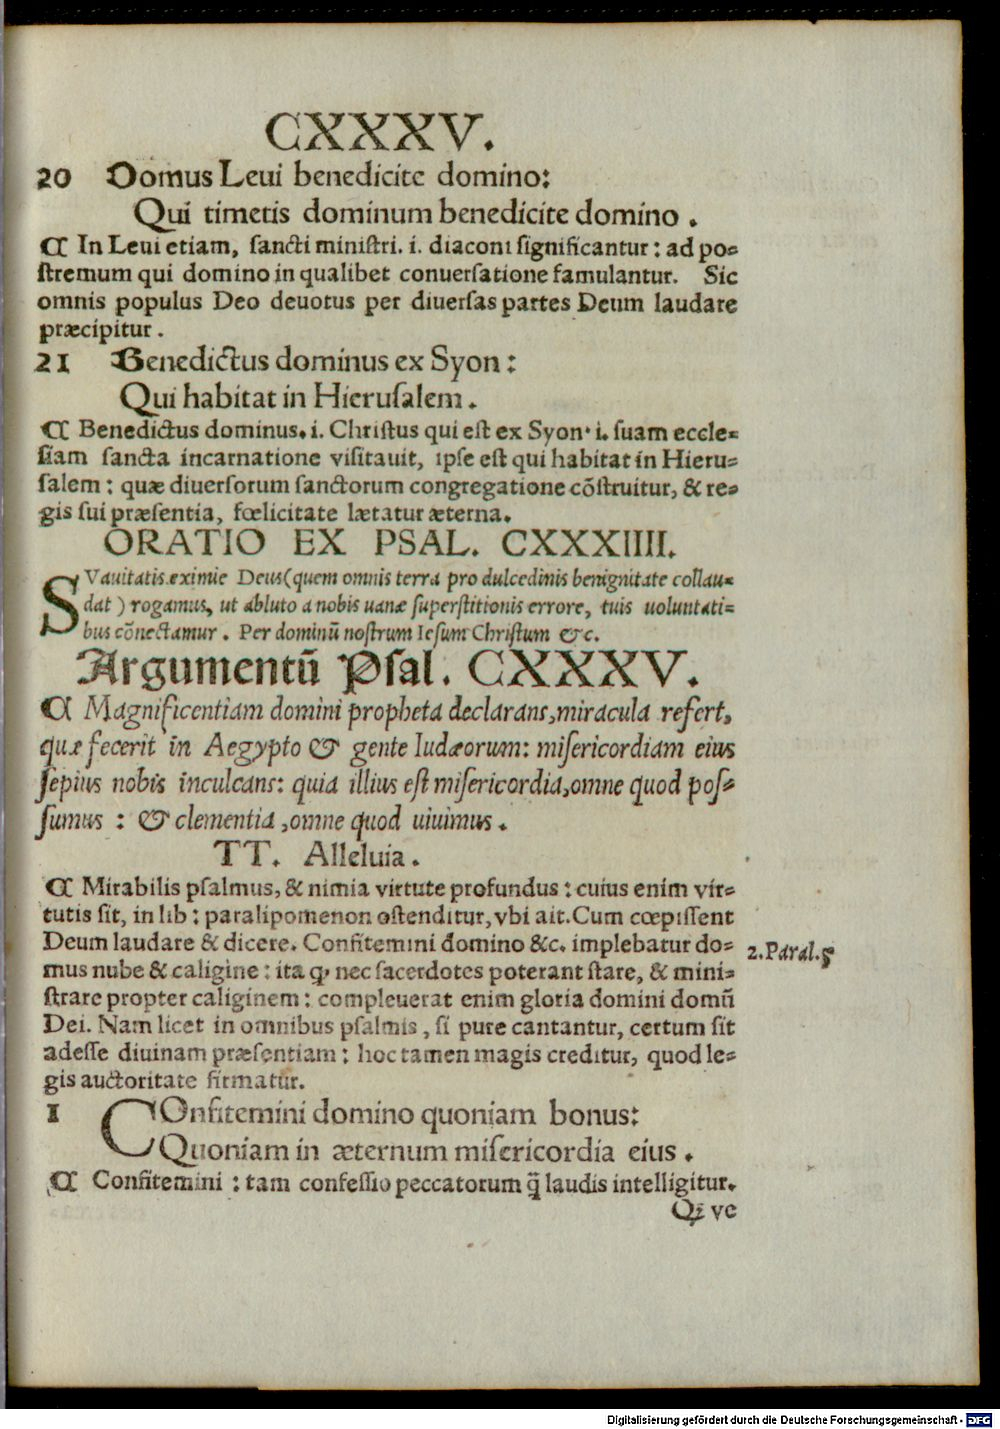 CXXXV.
20 Domus Leui benedicite domino:
Qui timetis dominum benedicite domino.
¶ In Leui etiam, ſancti miniſtri. i. diaconi ſignificantur: ad po-
ſtremum qui domino in qualibet conuerſatione famulantur. Sic
omnis populus Deo deuotus per diuerſas partes Deum laudare
præcipitur.
21 Benedictus dominus ex Syon:
Qui habitat in Hieruſalem.
¶ Benedictus dominus. i. Chriſtus qui eſt ex Syon. i. ſuam eccle-
ſiam ſancta incarnatione viſitauit, ipſe eſt qui habitat in Hieru-
ſalem: quæ diuerſorum ſanctorum congregatione cõſtruitur, & re-
gis ſui præſentia, fœlicitate lætatur æterna.
ORATIO EX PSAL. CXXXIIII.
SVauitatis eximie Deus (quem omnis terra pro dulcedinis benignitate collau-
dat) rogamus, ut abluto a nobis uanæ ſuperſtitionis errore, tuis uoluntati-
bus cõnectamur. Per dominũ noſtrum Ieſum Chriſtum &c.
Argumentũ Pſal. CXXXV.
¶ Magnificentiam domini propheta declarans, miracula refert,
quæ fecerit in Aegypto & gente Iudæorum: miſericordiam eius
ſepius nobis inculcans: quia illius eſt miſericordia, omne quod poſ-
ſumus: & clementia, omne quod uiuimus.
TT. Alleluia.
¶ Mirabilis pſalmus, & nimia virtute profundus: cuius enim vir-
tutis ſit, in lib: paralipomenon oſtenditur, vbi ait. Cum cœpiſſent
Deum laudare & dicere. Confitemini domino &c. implebatur do-
mus nube & caligine: ita ꝙ nec ſacerdotes poterant ſtare, & mini-
ſtrare propter caliginem: compleuerat enim gloria domini domũ
Dei. Nam licet in omnibus pſalmis, ſi pure cantantur, certum ſit
adeſſe diuinam præſentiam: hoc tamen magis creditur, quod le-
gis auctoritate firmatur.
2. Paral. 5
1 COnfitemini domino quoniam bonus:
Quoniam in æternum miſericordia eius.
¶ Confitemini: tam confeſſio peccatorum q̃ laudis intelligitur.
Q₂ ve
Digitalisierung gefördert durch die Deutsche Forschungsgemeinschaft - DFG